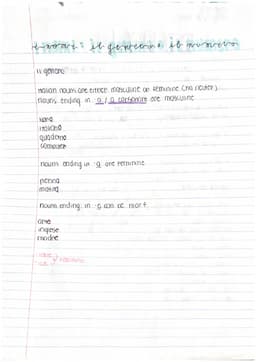 il genere
Italian nouns are either masculine or feminine (no neuter)
nouns ending in -o / a consonant are masculine
italiano
quaderno
computer
nouns ending in -a are feminine
penna
matita
nouns ending in -e can be m or f
inglese
madre